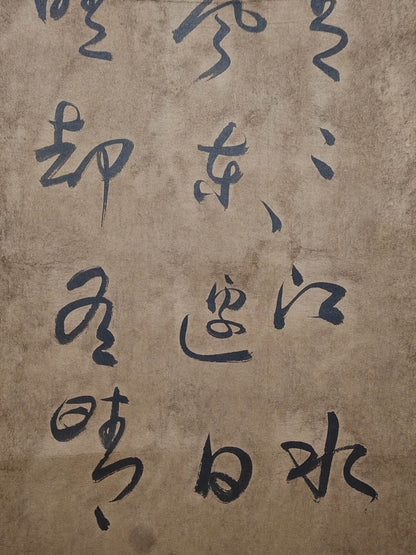 青〻江水
聲東邊日
晴却有晴